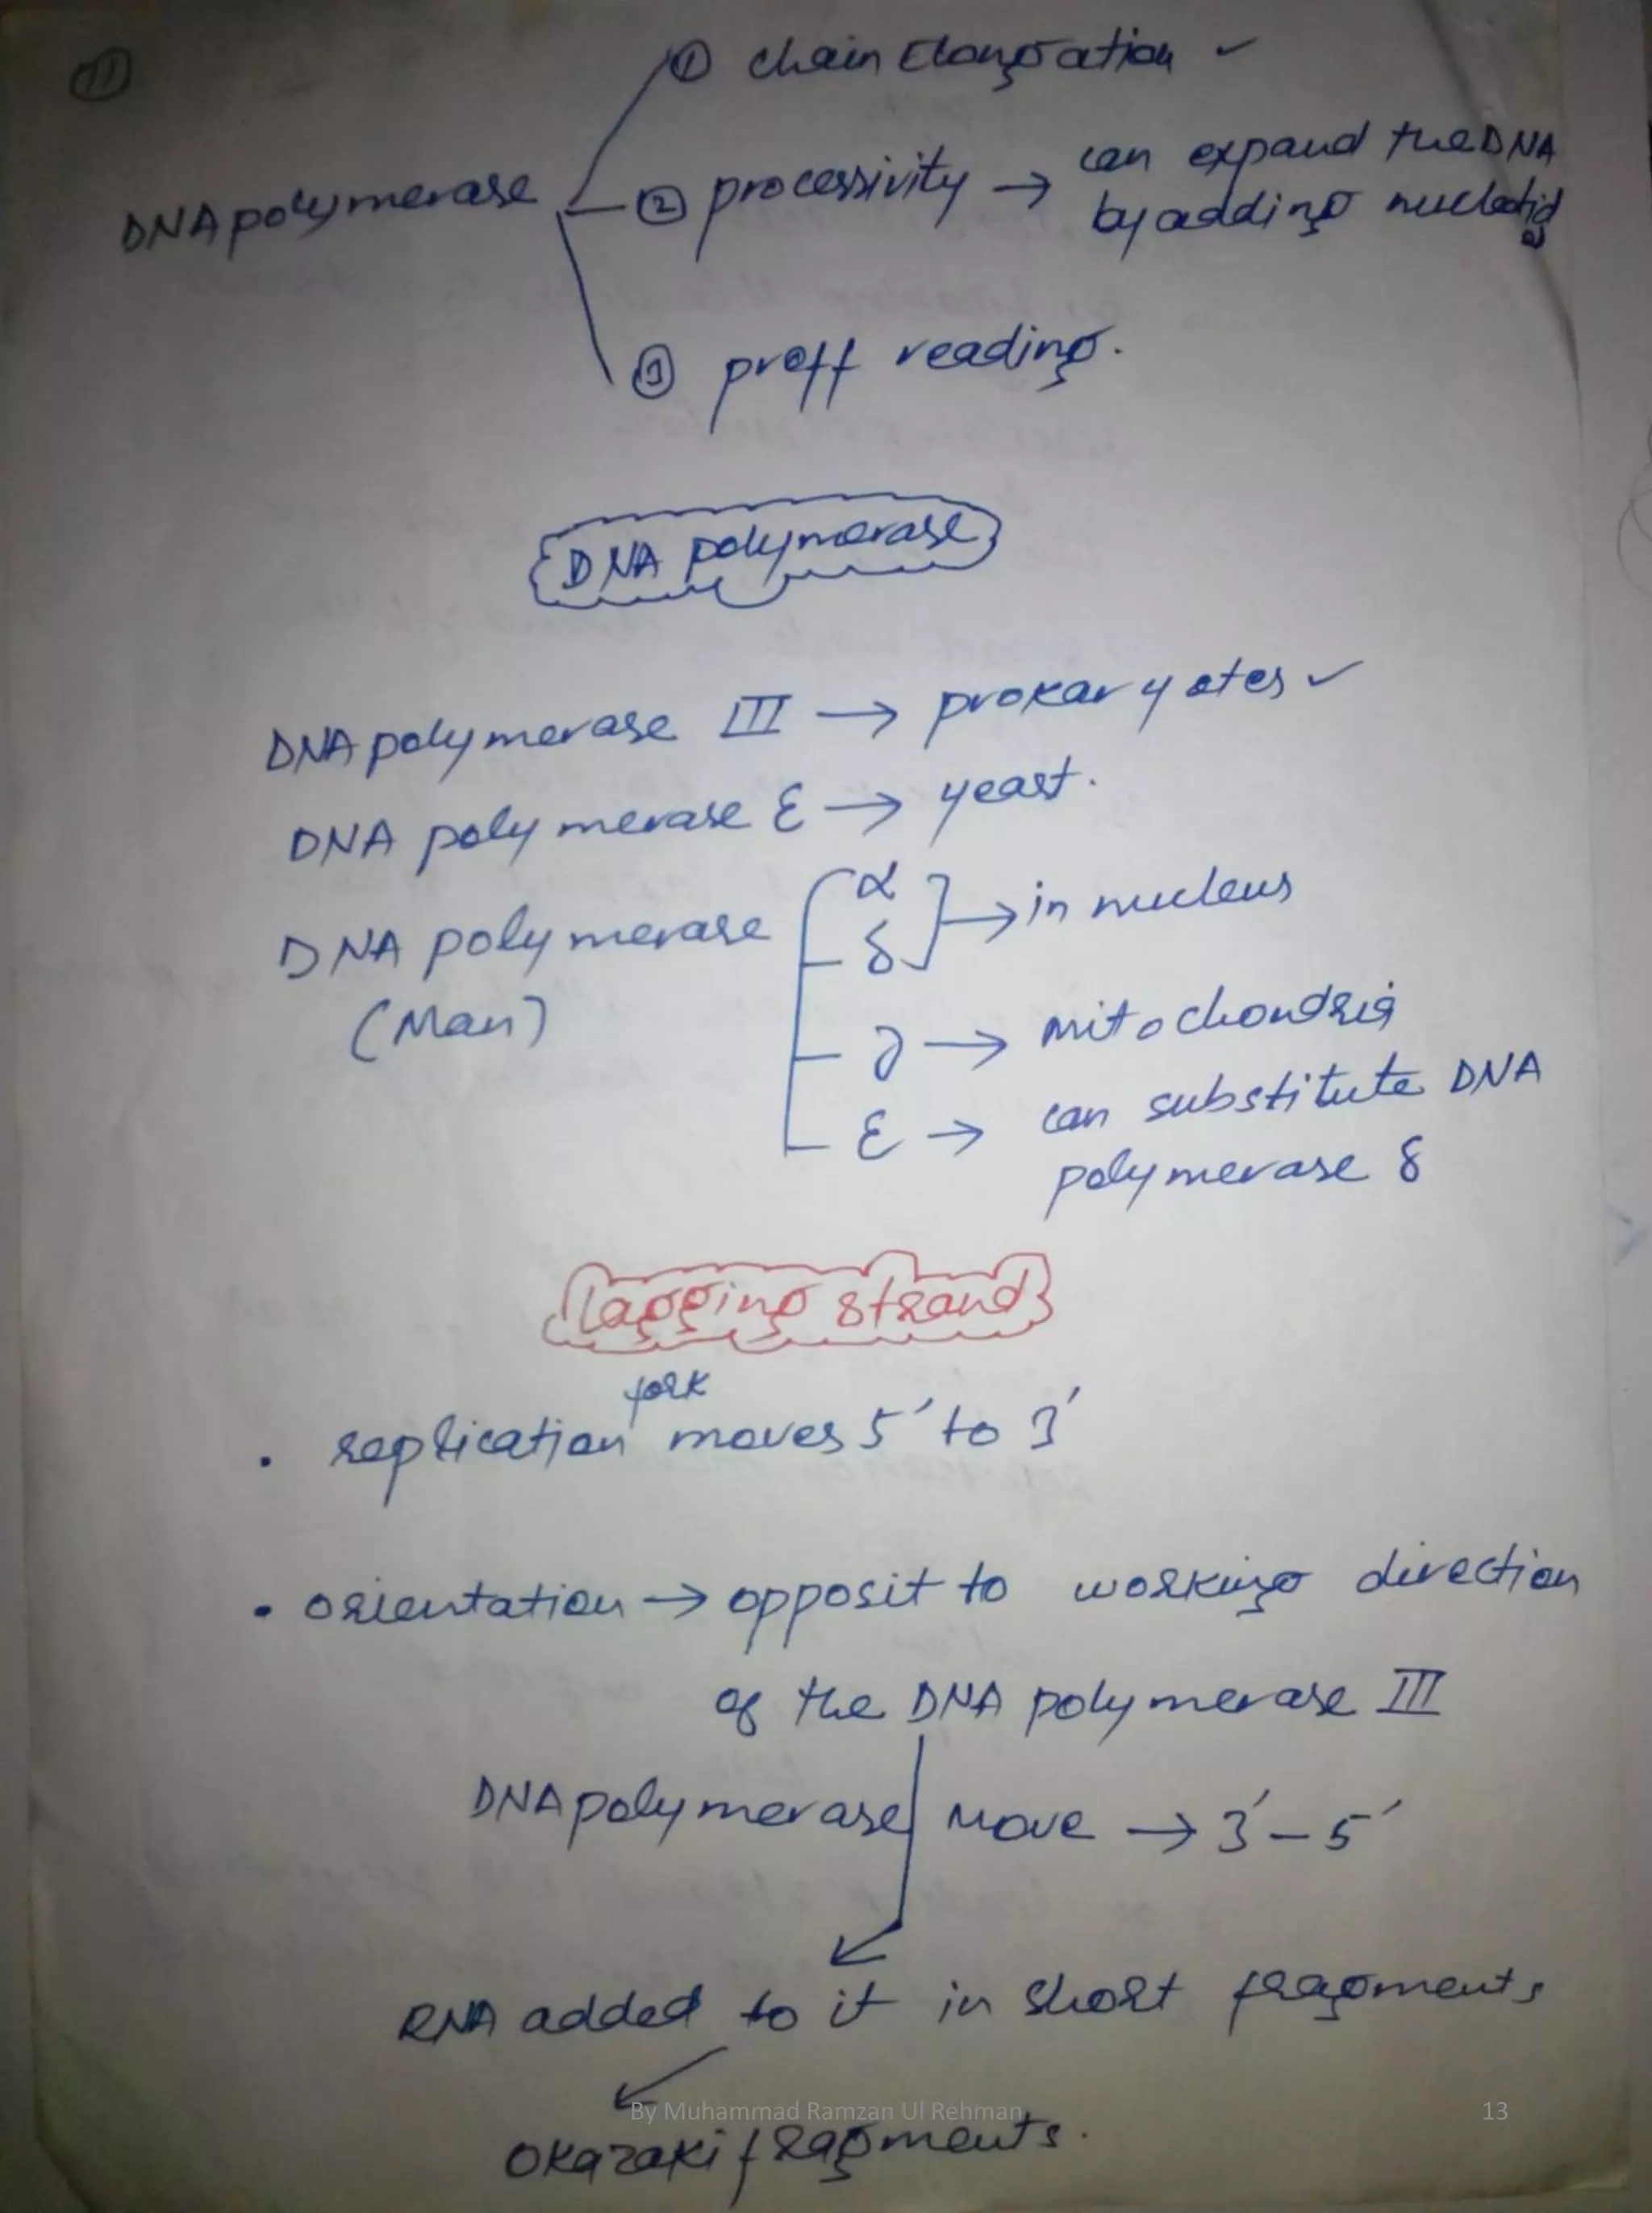 11
① chain Elongation ✓
DNA polymerase ② processivity → can expand the DNA
by adding nucleotide
③ proff reading.
DNA polymerase
DNA polymerase III → prokaryotes ✓
DNA polymerase ε → yeast.
DNA polymerase α
δ → in nucleus
(Man)
∂ → mitochondria
ε → can substitute DNA
polymerase δ
lagging strand
fork
• replication moves 5′ to 3′
• orientation → opposit to working direction
of the DNA polymerase III
DNA polymerase move → 3′ – 5′
RNA added to it in short fragments
By Muhammad Ramzan Ul Rehman 13
Okazaki fragments.